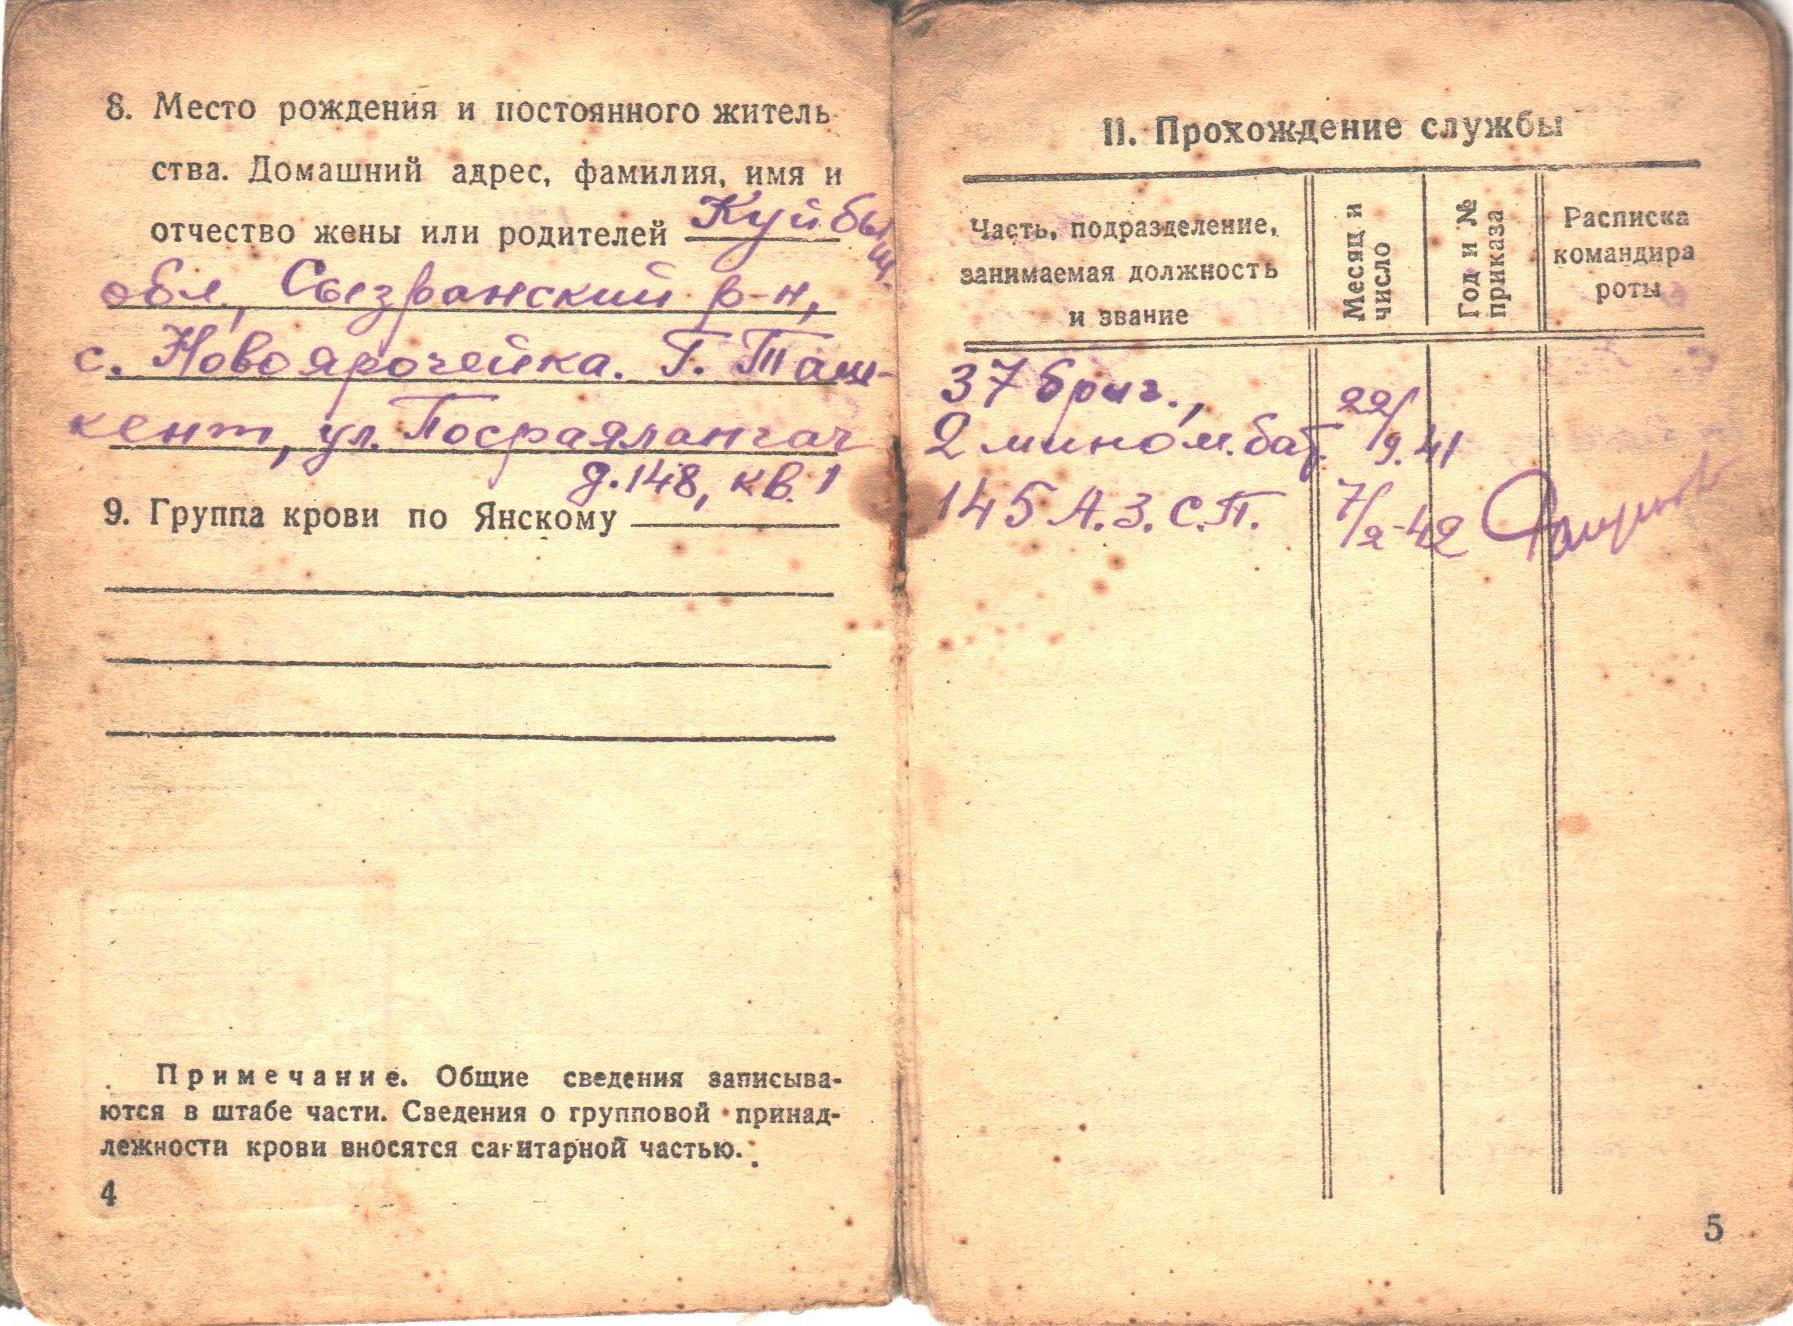 8. Место рождения и постоянного житель
ства. Домашний адрес, фамилия, имя и
отчество жены или родителей Куйбыш.
обл., Сызранский р-н,
с. Новоярочейка. Г. Таш-
кент, ул. Посраялангач
д.148, кв. 1
9. Группа крови по Янскому
Примечание. Общие сведения записыва-
ются в штабе части. Сведения о групповой принад-
лежности крови вносятся санитарной частью.
4
II. Прохождение службы
Часть, подразделение,
занимаемая должность
и звание
Месяц и
число
Год и №
приказа
Расписка
командира
роты
37 бриг.,
2 мином. бат. 22/9.41
145 А.З.С.П. 7/2-42
5